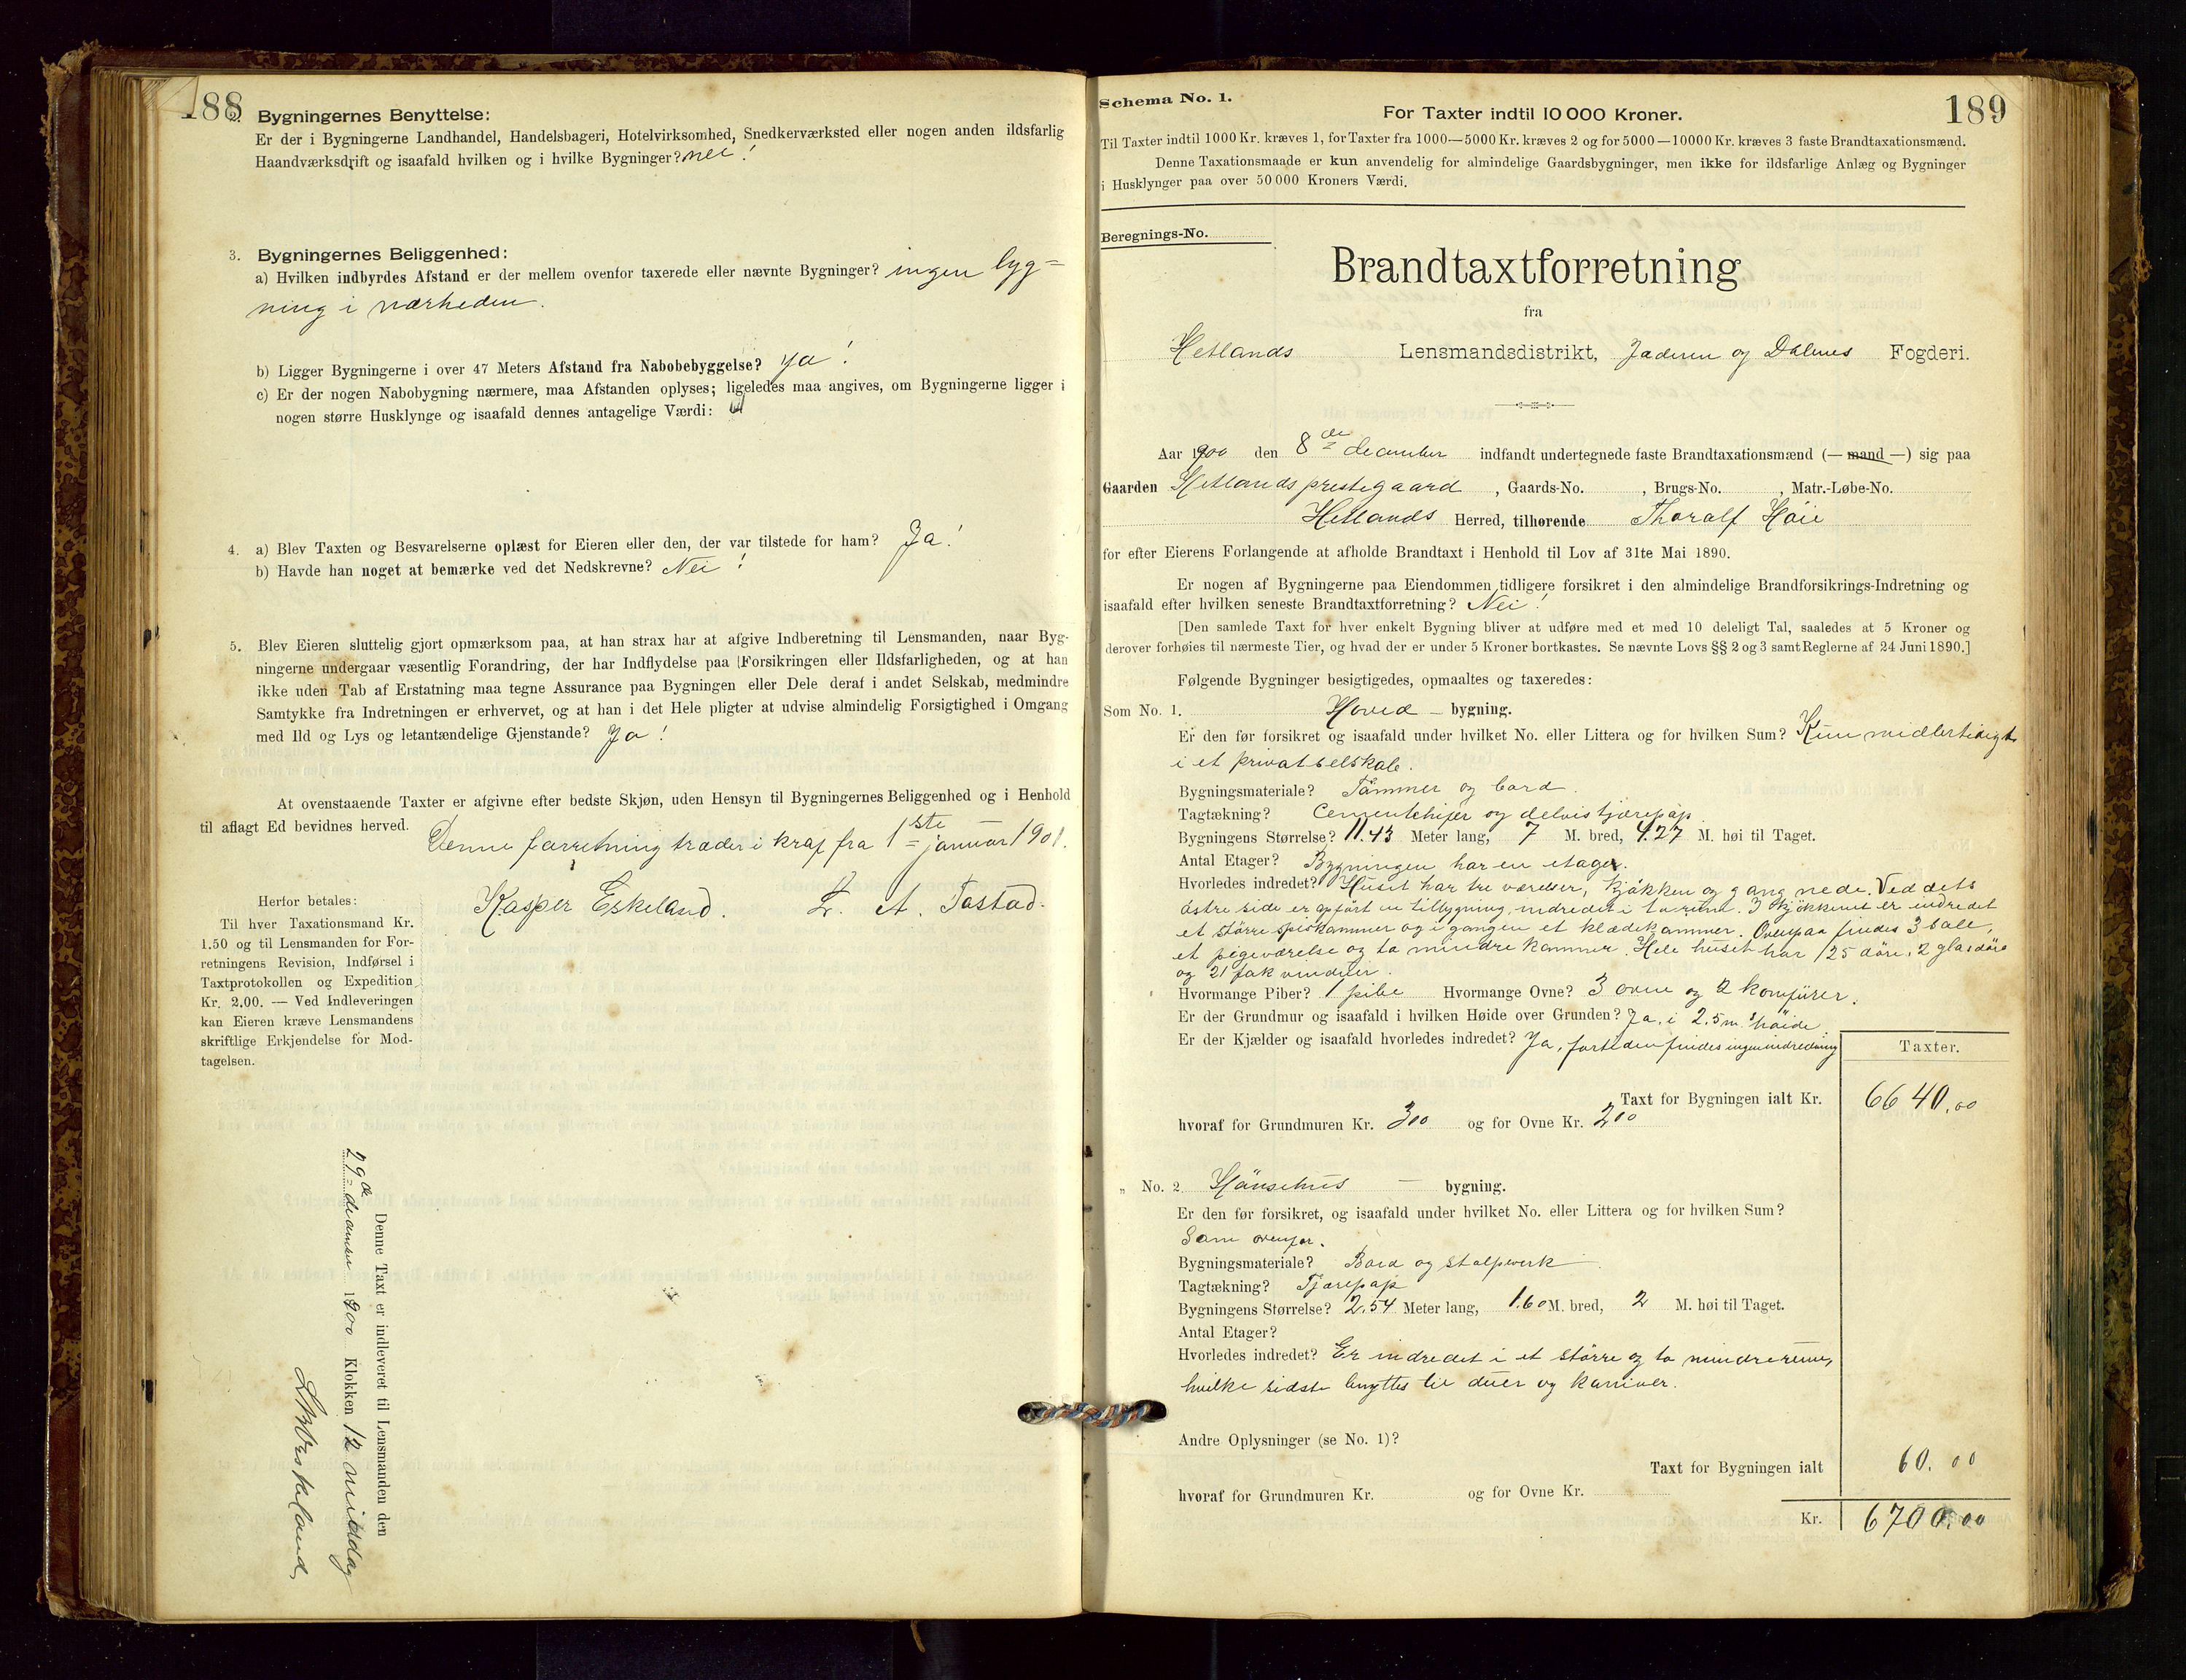 188
2. Bygningernes Benyttelse:
Er der i Bygningerne Landhandel, Handelsbageri, Hotelvirksomhed, Snedkerværksted eller nogen anden ildsfarlig
Haandværksdrift og isaafald hvilken og i hvilke Bygninger? nei!
3. Bygningernes Beliggenhed:
a) Hvilken indbyrdes Afstand er der mellem ovenfor taxerede eller nævnte Bygninger? ingen byg=
ning i nærheden.
b) Ligger Bygningerne i over 47 Meters Afstand fra Nabobebyggelse? ja!
c) Er der nogen Nabobygning nærmere, maa Afstanden oplyses; ligeledes maa angives, om Bygningerne ligger i
nogen større Husklynge og isaafald dennes antagelige Værdi:
4. a) Blev Taxten og Besvarelserne oplæst for Eieren eller den, der var tilstede for ham? Ja!
b) Havde han noget at bemærke ved det Nedskrevne? Nei!
5. Blev Eieren sluttelig gjort opmærksom paa, at han strax har at afgive Indberetning til Lensmanden, naar Byg-
ningerne undergaar væsentlig Forandring, der har Indflydelse paa Forsikringen eller Ildsfarligheden, og at han
ikke uden Tab af Erstatning maa tegne Assurance paa Bygningen eller Dele deraf i andet Selskab, medmindre
Samtykke fra Indretningen er erhvervet, og at han i det Hele pligter at udvise almindelig Forsigtighed i Omgang
med Ild og Lys og letantændelige Gjenstande? Ja!
At ovenstaaende Taxter er afgivne efter bedste Skjøn, uden Hensyn til Bygningernes Beliggenhed og i Henhold
til aflagt Ed bevidnes herved.
Denne forretning træder i kraf fra 1ste januar 1901.
Kasper Eskeland. L. A. Tastad.
Herfor betales:
Til hver Taxationsmand Kr.
1.50 og til Lensmanden for For-
retningens Revision, Indførsel i
Taxtprotokollen og Expedition
Kr. 2.00. — Ved Indleveringen
kan Eieren kræve Lensmandens
skriftlige Erkjendelse for Mod-
tagelsen.
Denne Taxt er indleveret til Lensmanden den
29de december 1900 Klokken 12 middag
189
Schema No. 1.
For Taxter indtil 10 000 Kroner.
Til Taxter indtil 1000 Kr. kræves 1, for Taxter fra 1000—5000 Kr. kræves 2 og for 5000—10000 Kr. kræves 3 faste Brandtaxationsmænd.
Denne Taxationsmaade er kun anvendelig for almindelige Gaardsbygninger, men ikke for ildsfarlige Anlæg og Bygninger
i Husklynger paa over 50 000 Kroners Værdi.
Beregnings-No.
Brandtaxtforretning
fra
Hetlands Lensmandsdistrikt, Jæderen og Dalernes Fogderi.
Aar 1900 den 8de december indfandt undertegnede faste Brandtaxationsmænd (— mand —) sig paa
Gaarden Hetlands prestegaard, Gaards-No. , Brugs-No. , Matr.-Løbe-No.
Hetlands Herred, tilhørende Thoralf Høie
for efter Eierens Forlangende at afholde Brandtaxt i Henhold til Lov af 31te Mai 1890.
Er nogen af Bygningerne paa Eiendommen tidligere forsikret i den almindelige Brandforsikrings-Indretning og
isaafald efter hvilken seneste Brandtaxtforretning? Nei!
[Den samlede Taxt for hver enkelt Bygning bliver at udføre med et med 10 deleligt Tal, saaledes at 5 Kroner og
derover forhøies til nærmeste Tier, og hvad der er under 5 Kroner bortkastes. Se nævnte Lovs §§ 2 og 3 samt Reglerne af 24 Juni 1890.]
Følgende Bygninger besigtigedes, opmaaltes og taxeredes:
Som No. 1. Hoved — bygning.
Er den før forsikret og isaafald under hvilket No. eller Littera og for hvilken Sum? Kun midlertidigt
i et privat selskab.
Bygningsmateriale? Tømmer og bord.
Tagtækning? Cementskifer og delvis tjærepap.
Bygningens Størrelse? 11.43 Meter lang, 7 M. bred, 4.27 M. høi til Taget.
Antal Etager? Bygningen har en etage.
Hvorledes indredet? Huset har tre værelser, kjøkken og gang nede. Ved dets
østre side er opført en tilbygning, indredet i to rum. I kjøkkenet er indredet
et større spiskammer og i gangen et klædekammer. Ovenpaa findes 3 sale,
et pigeværelse og to mindre kammer. Hele huset har 25 døre, 2 glasdøre
og 21 fak vinduer.
Hvormange Piber? 1 pibe Hvormange Ovne? 3 ovne og 2 komfürer.
Er der Grundmur og isaafald i hvilken Høide over Grunden? Ja, i 2.5 m. høide.
Er der Kjælder og isaafald hvorledes indredet? Ja, fortiden findes ingen indredning
Taxter.
Taxt for Bygningen ialt Kr. 6640.00
hvoraf for Grundmuren Kr. 300 og for Ovne Kr. 200
„ No. 2. Hønsehus — bygning.
Er den før forsikret, og isaafald under hvilket No. eller Littera og for hvilken Sum?
Som ovenfor.
Bygningsmateriale? Bord og stolpverk
Tagtækning? Tjærepap
Bygningens Størrelse? 2.54 Meter lang, 1.60 M. bred, 2 M. høi til Taget.
Antal Etager?
Hvorledes indredet? Er indredet i et større og to mindre rum,
hvilke sidste benyttes til duer og kaniner.
Andre Oplysninger (se No. 1)?
Taxt for Bygningen ialt 60.00
hvoraf for Grundmuren Kr. og for Ovne Kr.
Kr. 6700.00